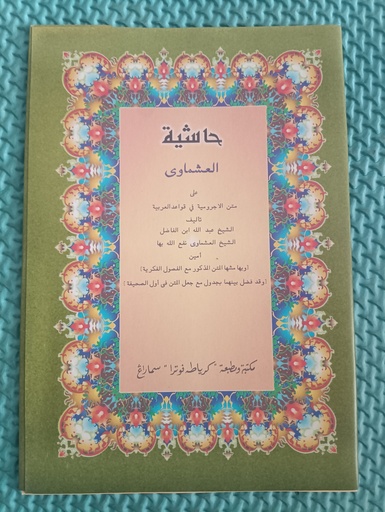 حاشية
العشماوى
على
متن الاجرومية في قواعدالعربية
تاليف
الشيخ عبد الله ابن الفاضل
الشيخ العشماوى نفع الله بها
آمين
(وبهامشها المتن المذكور مع الفصول الفكرية)
(وقد فصل بينهما بجدول مع جعل المتن في أولى الصحيفة)
مكتبة ومطبعة " كرياطه فوترا " سماراڠ